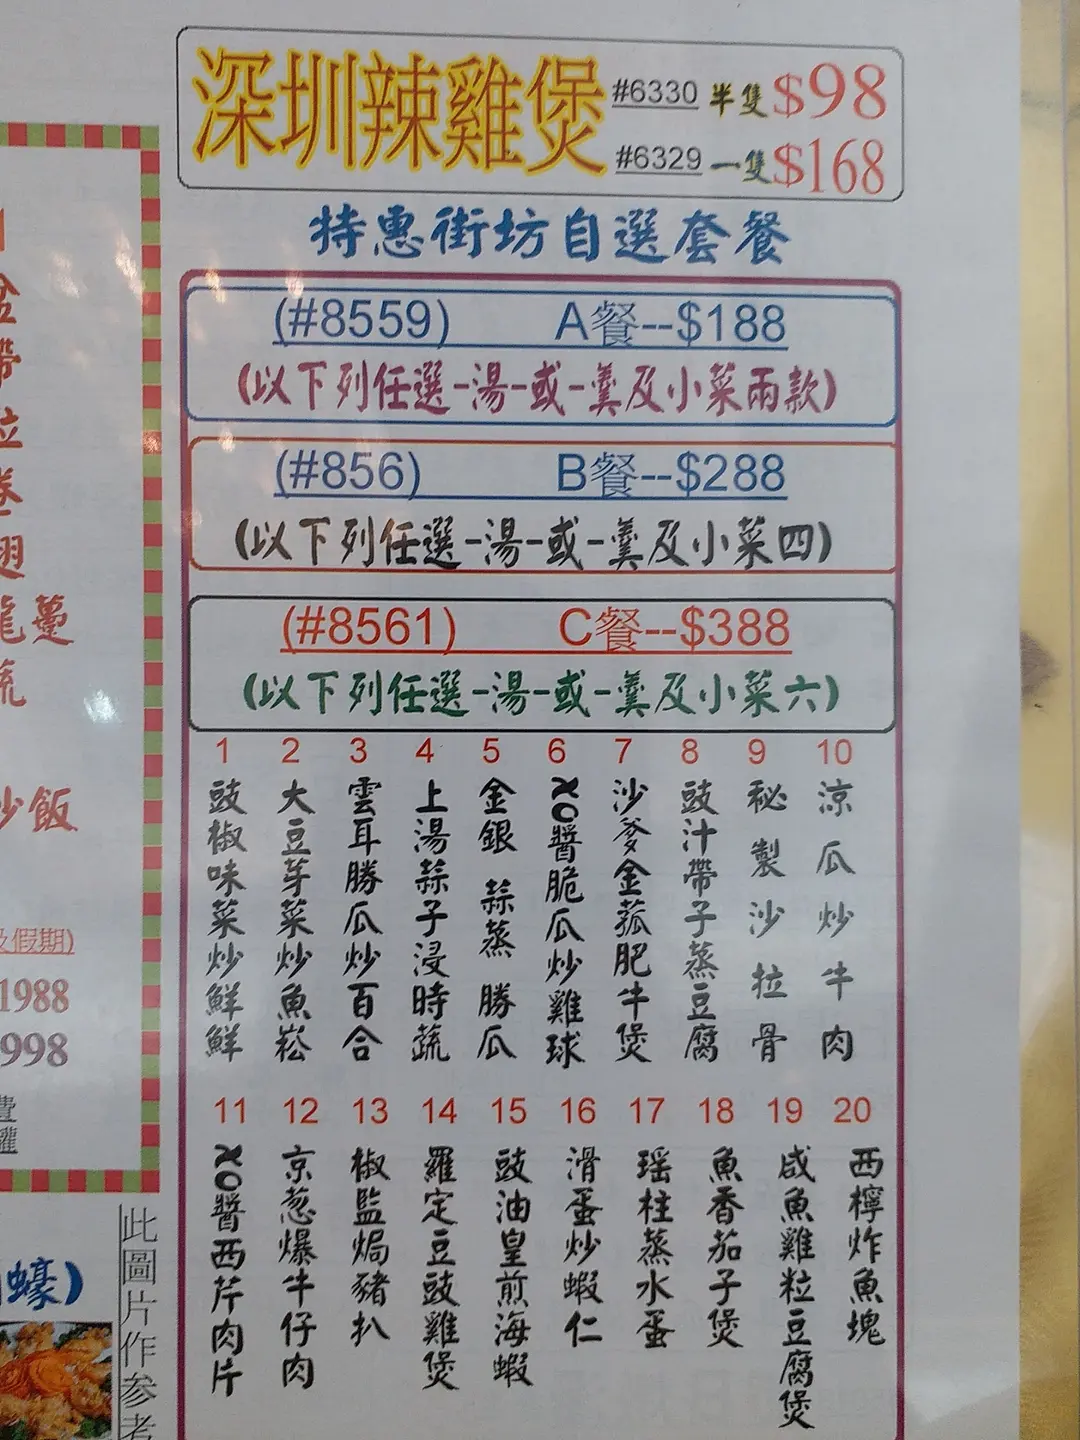 深圳辣雞煲 #6330 半隻$98
#6329 一隻$168
特惠街坊自選套餐
(#8559) A餐--$188
(以下列任選-湯-或-羹及小菜兩款)
(#856) B餐--$288
(以下列任選-湯-或-羹及小菜四)
(#8561) C餐--$388
(以下列任選-湯-或-羹及小菜六)
1 豉椒味菜炒鮮鮮
2 大豆芽菜炒魚崧
3 雲耳勝瓜炒百合
4 上湯蒜子浸時蔬
5 金銀 蒜蒸 勝瓜
6 XO醬脆瓜炒雞球
7 沙爹金菇肥牛煲
8 豉汁帶子蒸豆腐
9 秘製沙拉骨
10 涼瓜炒牛肉
11 XO醬西芹肉片
12 京葱爆牛仔肉
13 椒監焗豬扒
14 羅定豆豉雞煲
15 豉油皇煎海蝦
16 滑蛋炒蝦仁
17 瑶柱蒸水蛋
18 魚香茄子煲
19 咸魚雞粒豆腐煲
20 西檸炸魚塊
龍躉
炒飯
及假期)
1988
998
費
罐
蠔)
此圖片作參考